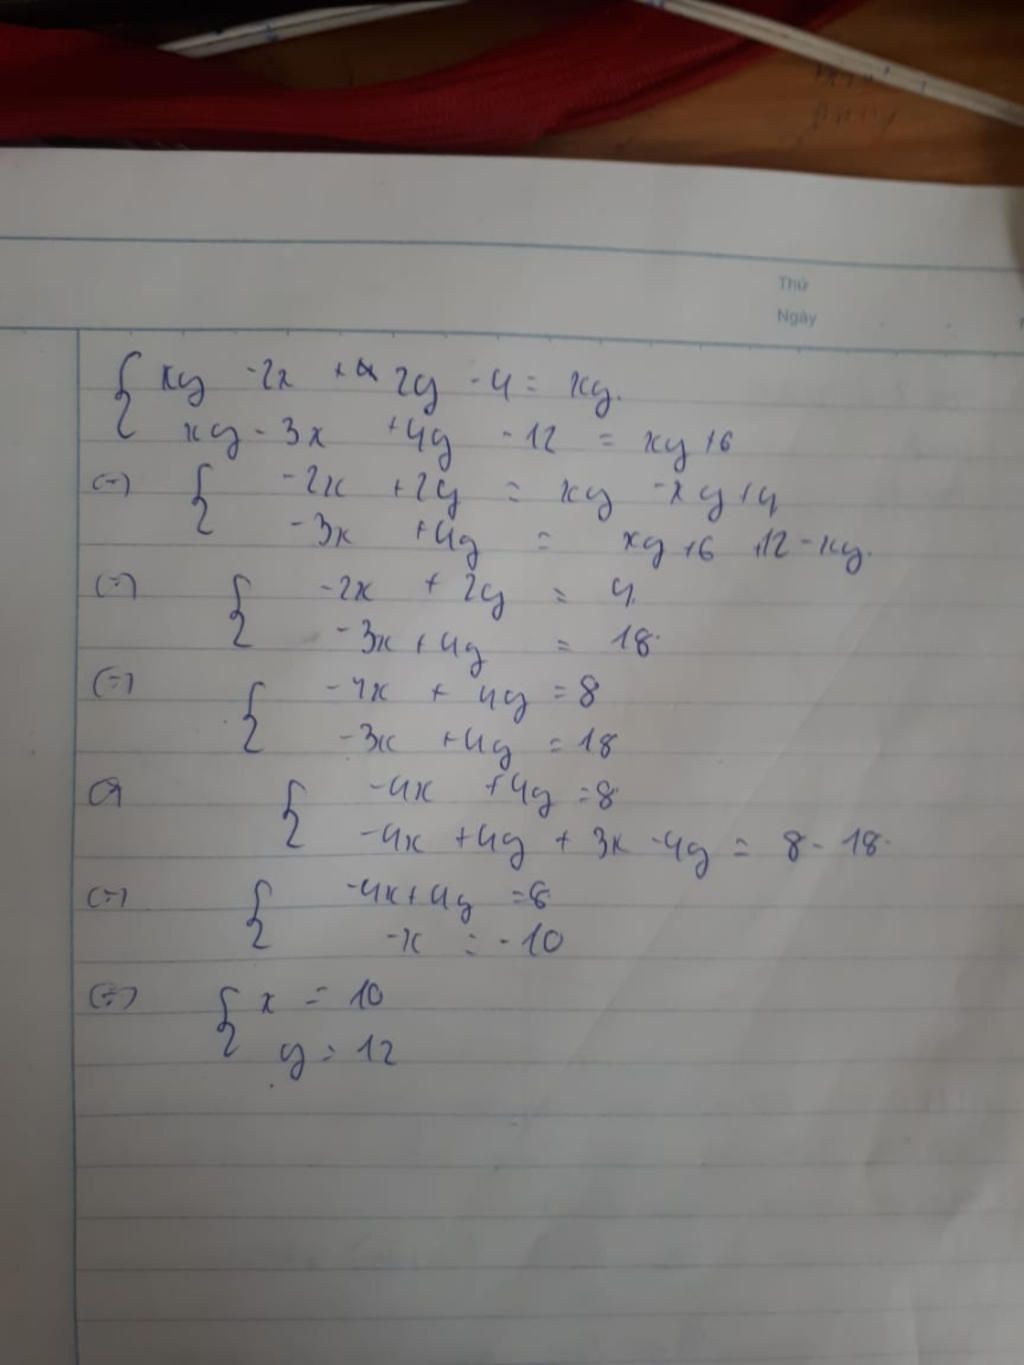 Thứ
Ngày
{ xy - 2x + 2y - 4 = xy.
xy - 3x + 4y - 12 = xy + 6
(=) { -2x + 2y = xy - xy + 4
-3x + 4y = xy + 6 + 12 - xy.
(=) { -2x + 2y = 4.
-3x + 4y = 18.
(=) { -4x + 4y = 8
-3x + 4y = 18
{ -4x + 4y = 8
-4x + 4y + 3x - 4y = 8 - 18.
(=) { -4x + 4y = 8
-x = -10
(=) { x = 10
y = 12